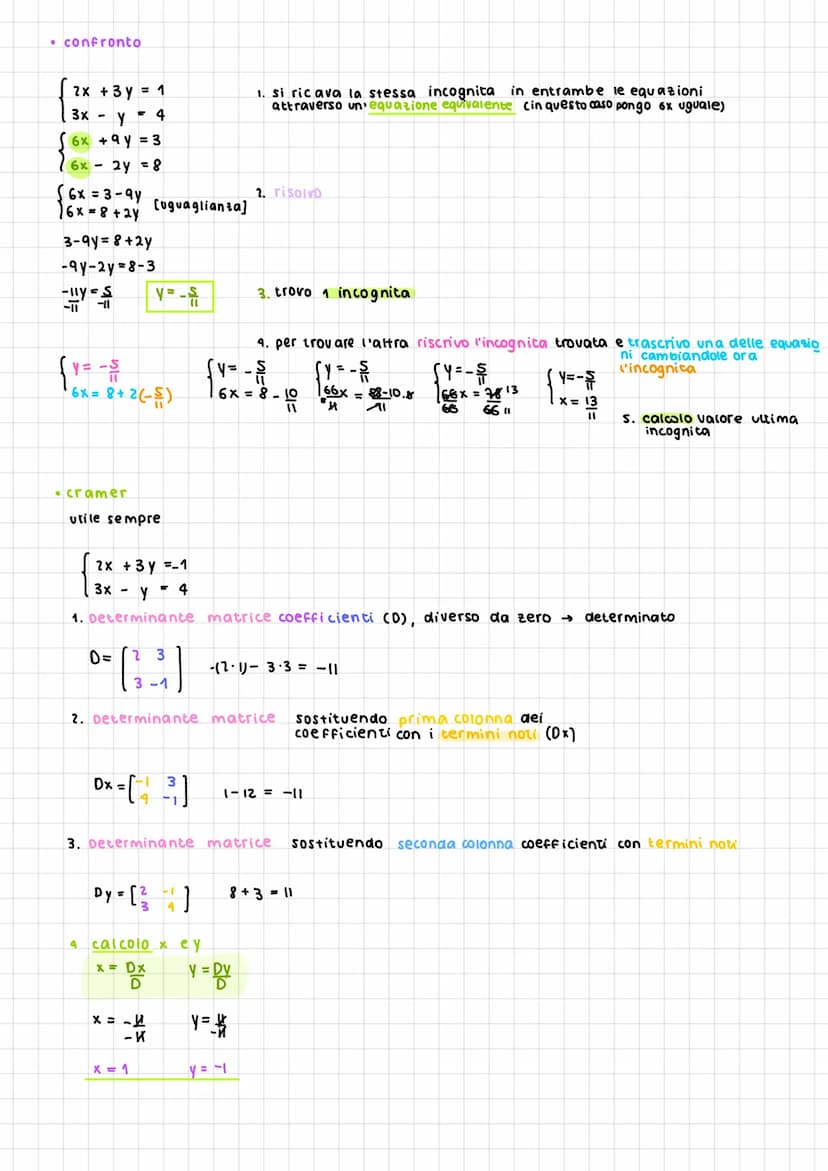 • confronto
2x + 3y = 1
3x - y = 4
1. si ricava la stessa incognita in entrambe le equazioni
attraverso un'equazione equivalente (in questo caso pongo 6x uguale)
6x + 9y = 3
6x - 2y = 8
6x = 3-9y
6x = 8 + 2y [uguaglianza]
2. risolvo
3-9y = 8+2y
-9y-2y = 8-3
-11y/-11 = 5/-11 y = -5/11
3. trovo 1 incognita
4. per trovare l'altra riscrivo l'incognita trovata e trascrivo una delle equazio
ni cambiandole ora
l'incognita
y = -5/11 y = -5/11 y = -5/11 y = -5/11 y = -5/11
6x = 8 + 2(-5/11) 6x = 8 - 10/11 66x/11 = 88-10/11 66x/66 = 78 13/66 11 x = 13/11
5. calcolo valore ultima
incognita
• cramer
utile sempre
2x + 3y = -1
3x - y = 4
1. Determinante matrice coefficienti (D), diverso da zero → determinato
D = [2 3
3 -1] -(2·1) - 3·3 = -11
2. Determinante matrice sostituendo prima colonna dei
coefficienti con i termini noti (Dx)
Dx = [-1 3
4 -1] 1-12 = -11
3. Determinante matrice sostituendo seconda colonna coefficienti con termini noti
Dy = [2 -1
3 4] 8+3 = 11
4 calcolo x e y
x = Dx/D y = Dy/D
x = -11/-11 y = 11/-11
x = 1 y = -1